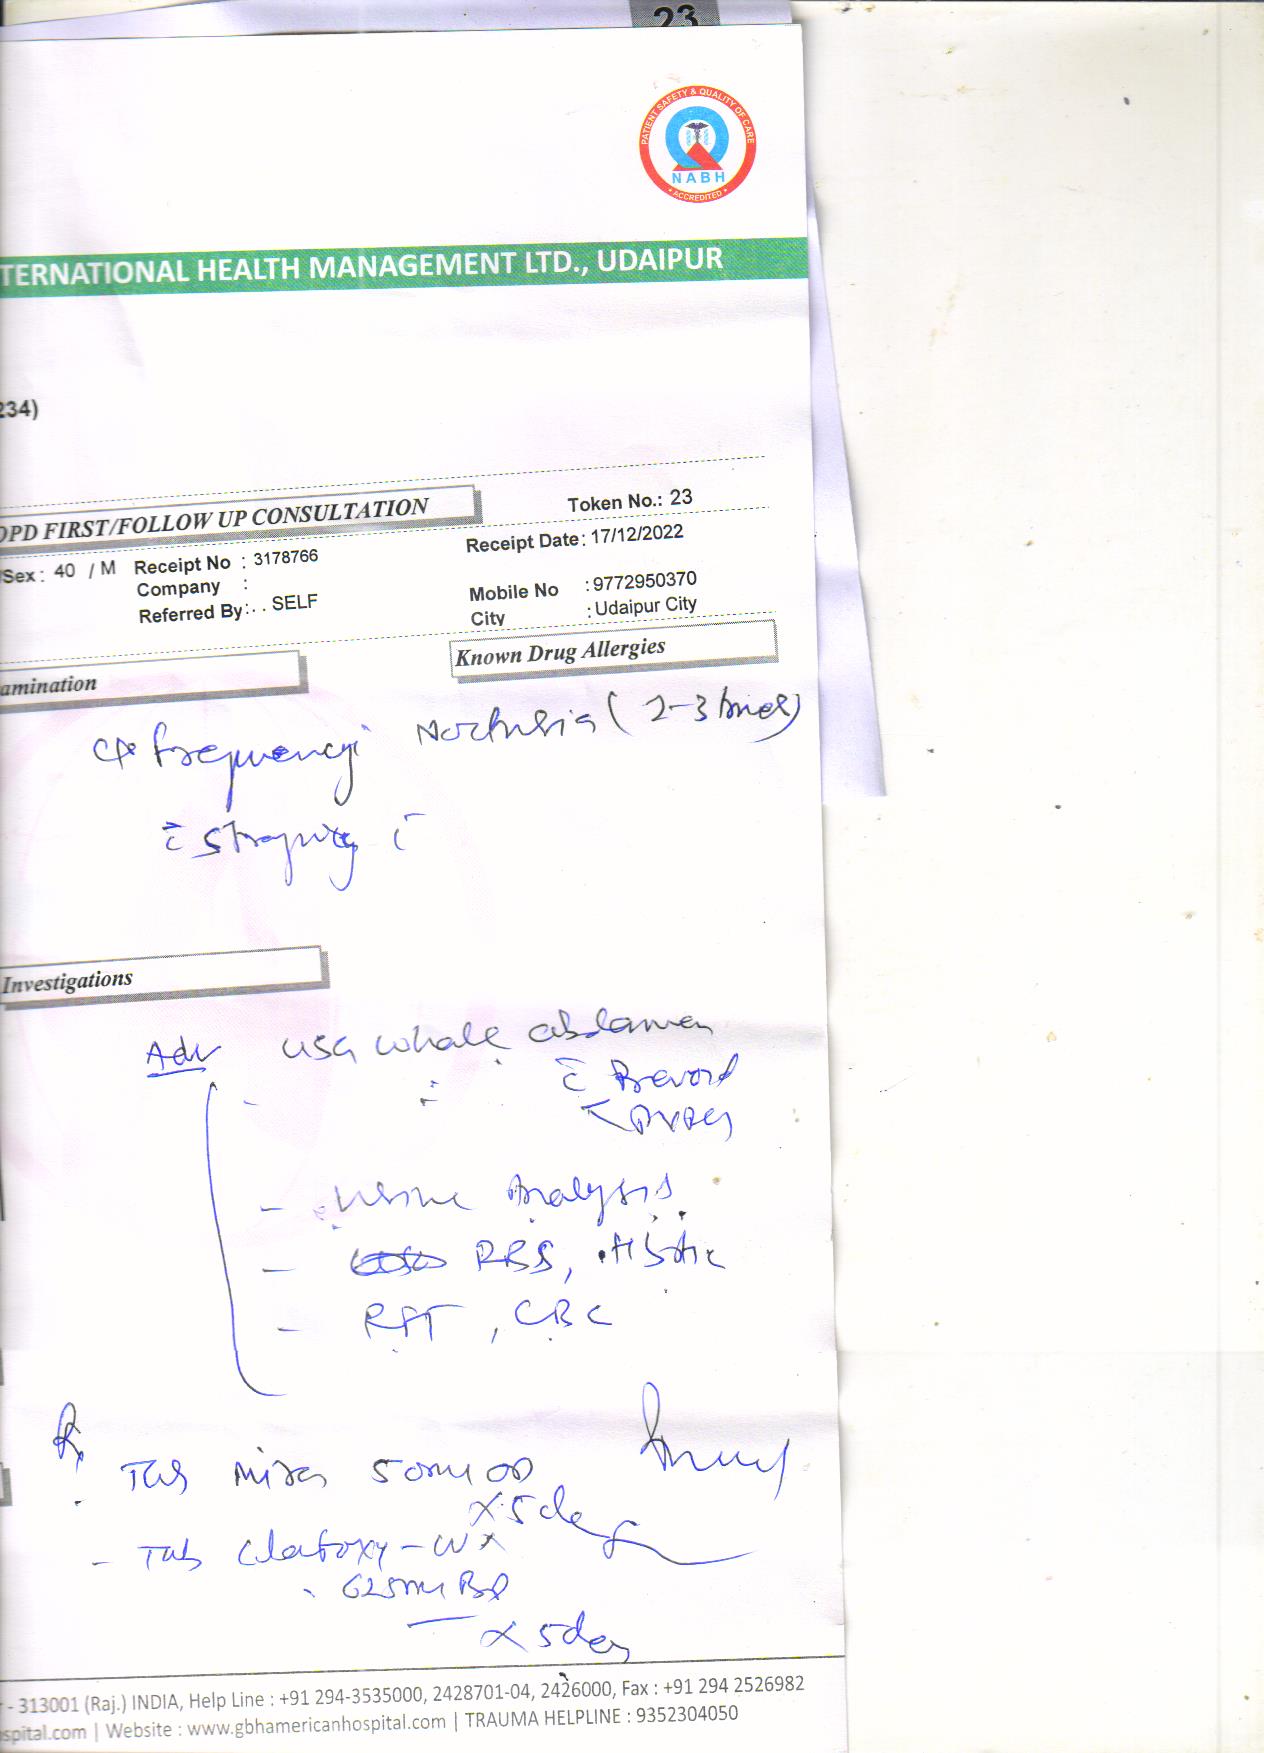 23
PATIENT SAFETY & QUALITY OF CARE
NABH
• ACCREDITED •
TERNATIONAL HEALTH MANAGEMENT LTD., UDAIPUR
234)
OPD FIRST/FOLLOW UP CONSULTATION
Token No.: 23
/Sex: 40 / M Receipt No : 3178766
Receipt Date: 17/12/2022
Company :
Mobile No : 9772950370
Referred By: . . SELF
City : Udaipur City
amination
Known Drug Allergies
frequency Nocturia (2-3 times)
c̄
Investigations
Adv USG whole abdomen
c̄ Prevoid
- Urine Analysis
- RBS,
- RFT, CBC
Rx
Tab 50mg OD
x 5 day
- Tab
625mg BD
x 5 day
- 313001 (Raj.) INDIA, Help Line : +91 294-3535000, 2428701-04, 2426000, Fax : +91 294 2526982
ospital.com | Website : www.gbhamericanhospital.com | TRAUMA HELPLINE : 9352304050